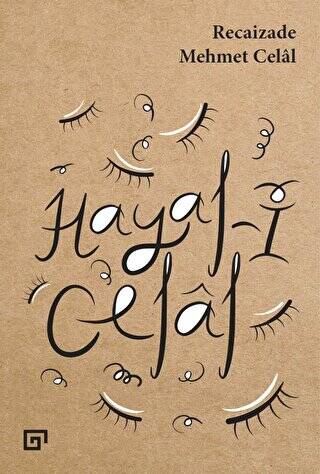 Recaizade
Mehmet Celâl
Hayal-i
Celâl